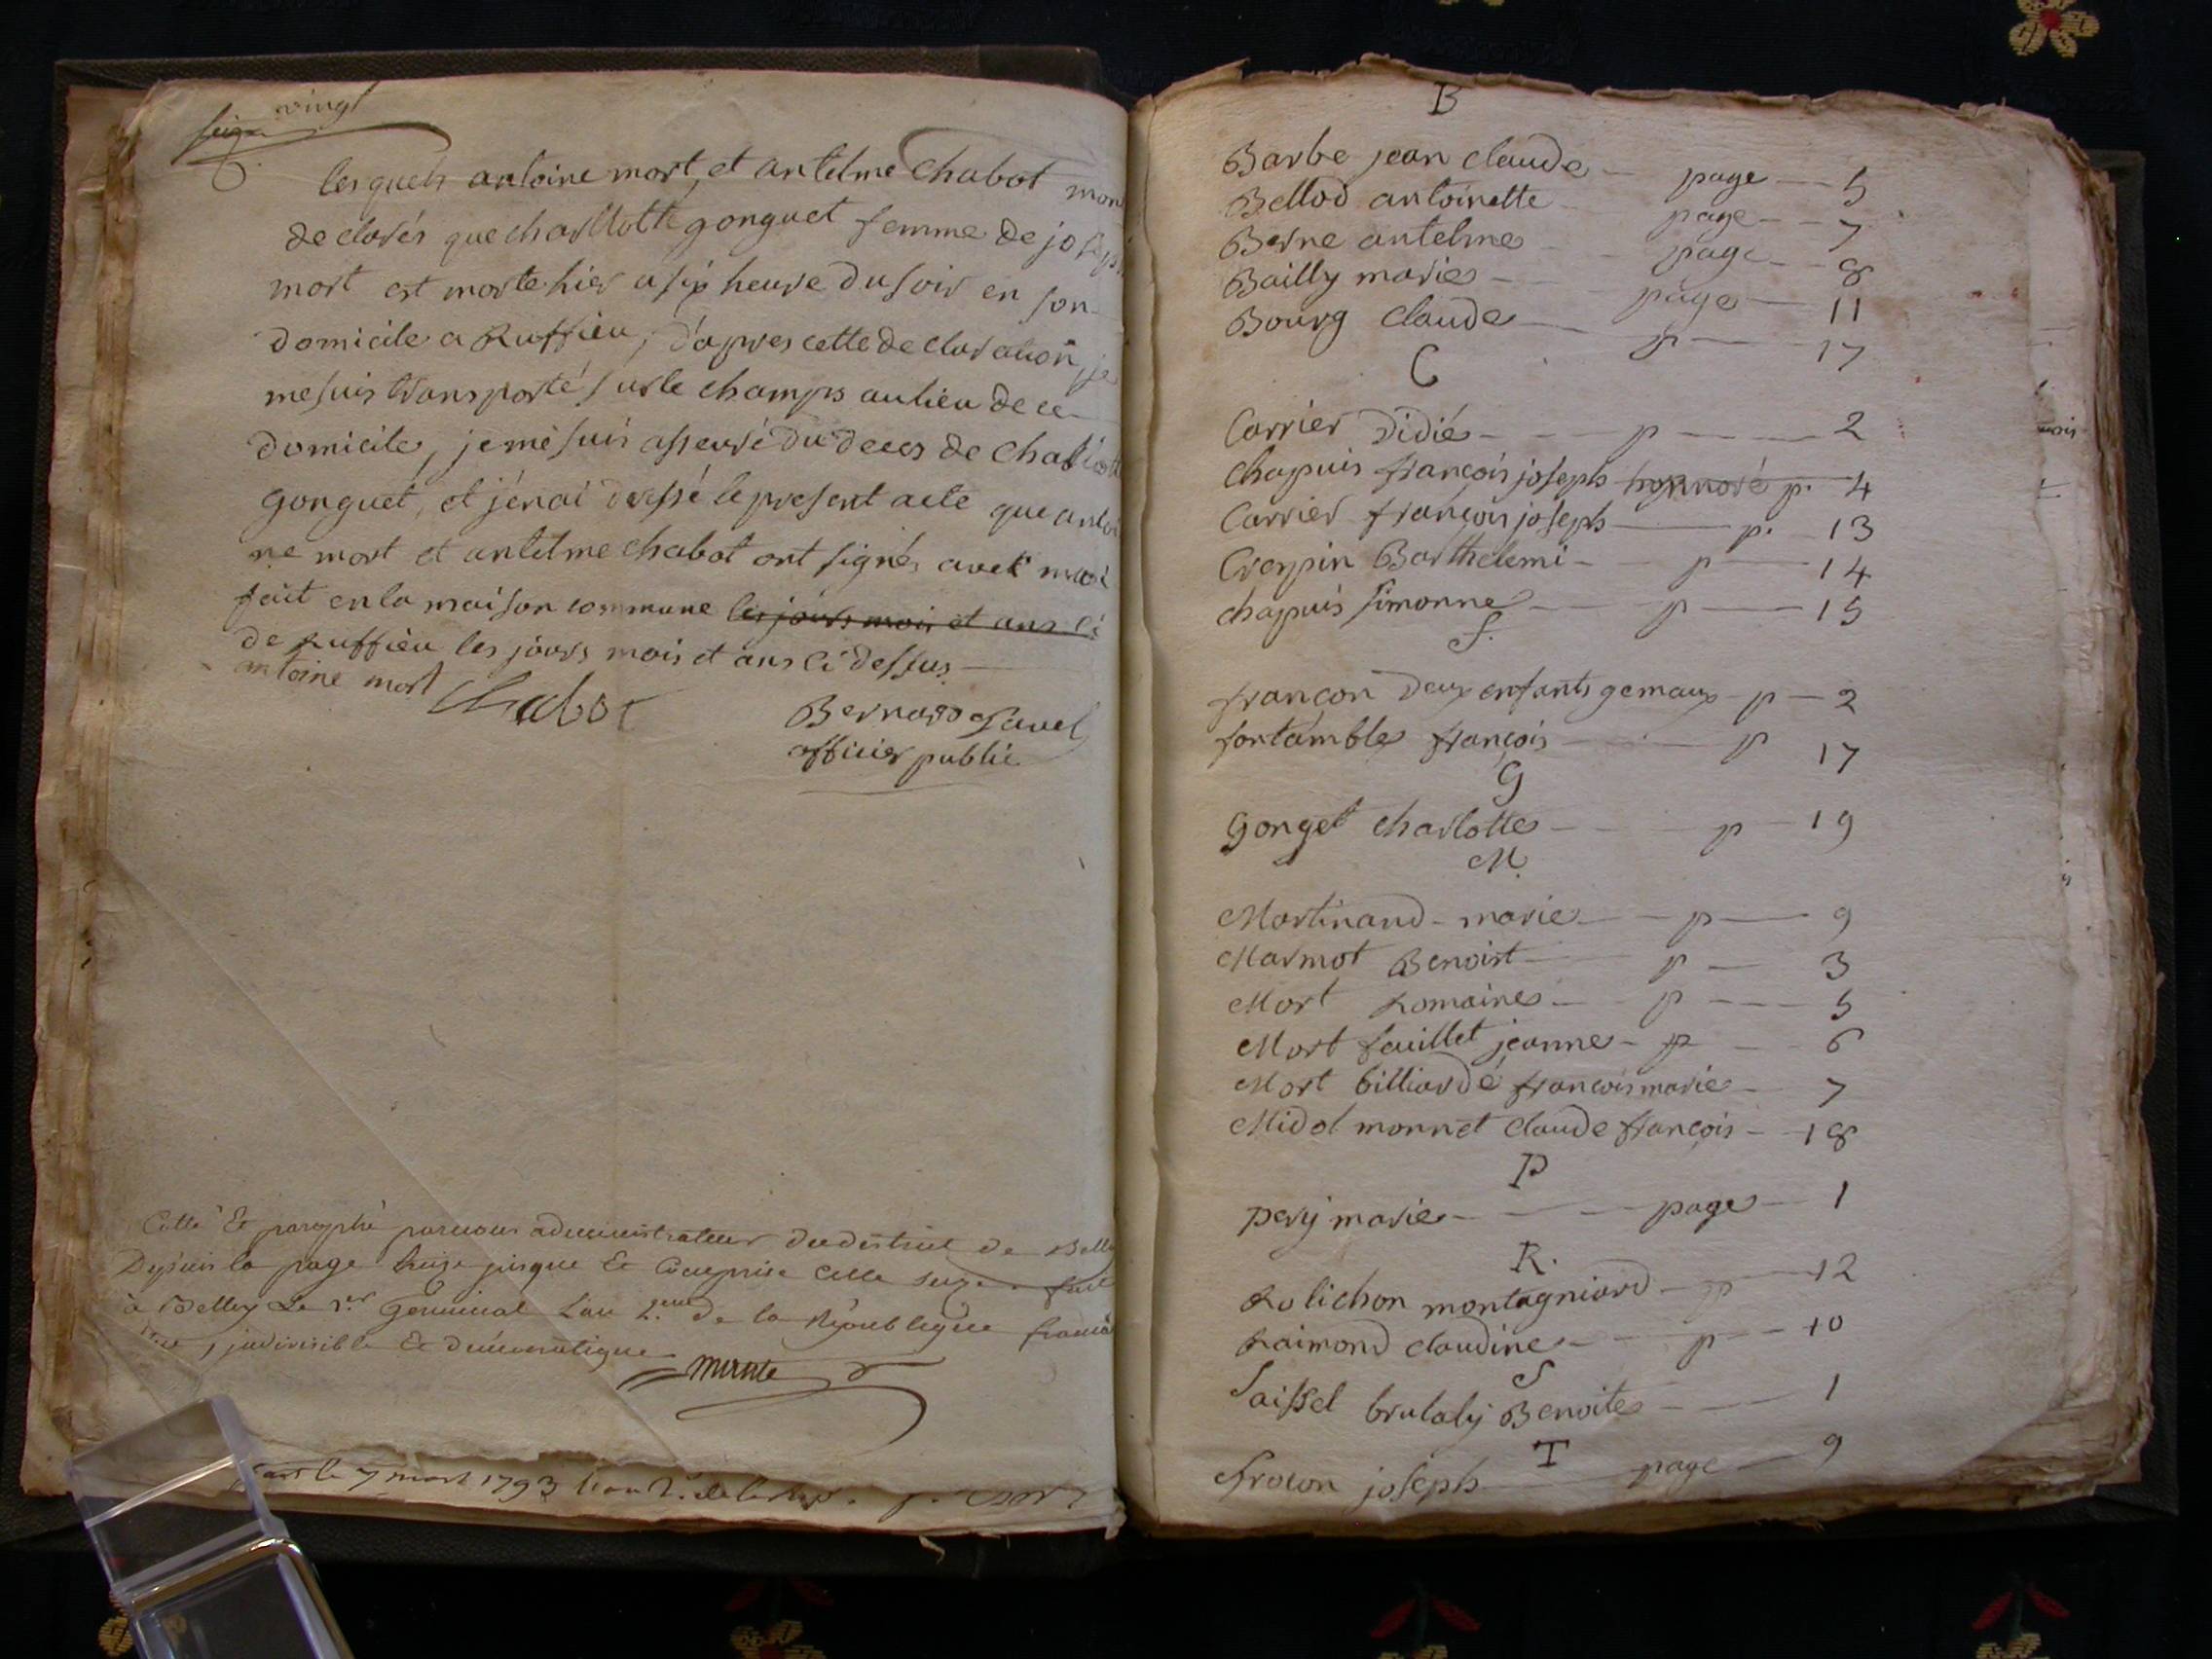 vingt
lesquels antoine mort, et antelme Chabot mon
declarés que charllotte gonguet femme de joseph
mort est morte hier a six heure du soir en son
domicile a Ruffieu, d'apres cette declaration, je
me suis transporté sur le champs au lieu de ce
domicile, je mè suis asseuré du deces de Charlott
gonguet, et j'enai dressé le present acte que antoi
ne mort et antelme chabot ont signés avec moi
fait en la maison commune les jours mois et ans ci
de Ruffieu les jours mois et ans ci dessus
antoine mort Chabot
Bernard Savel
officier public
Cotté Et paraphé par nous administrateur du district de Belley
Depuis la page jusque Et Comprise Celle seize. fait
à Belley Le 1er Germinal L'an 2eme De la République francai
indivisible Et Démocratique
le 7 mars 1793 l'an 2e de la rep.
B
Barbe jean claude page 5
Bellod antoinette page 7
Berne antelme page 8
Bailly marie page 11
Bourg Claude p 17
C
Carrier Didié p 2
Chapuis françois joseph p. 4
Carrier françois joseph p. 13
Crespin Barthelemi p 14
chapuis simonne p 15
f.
françon deux enfants gemaux p 2
fontamble françois p 17
G
Gonget charlotte p 19
M.
Martinand marie p 9
Marmot Benoist p 3
Mort Romaine p 5
Mort fauillet jeanne p 6
Mort billiardé francois marie 7
Midol monnet Claude françois 18
P
pery marie page 1
R.
Rolichon montagniard p 12
Raimond claudine p 10
S
Saissel brulaly Benoite 1
T
Trocon joseph page 9